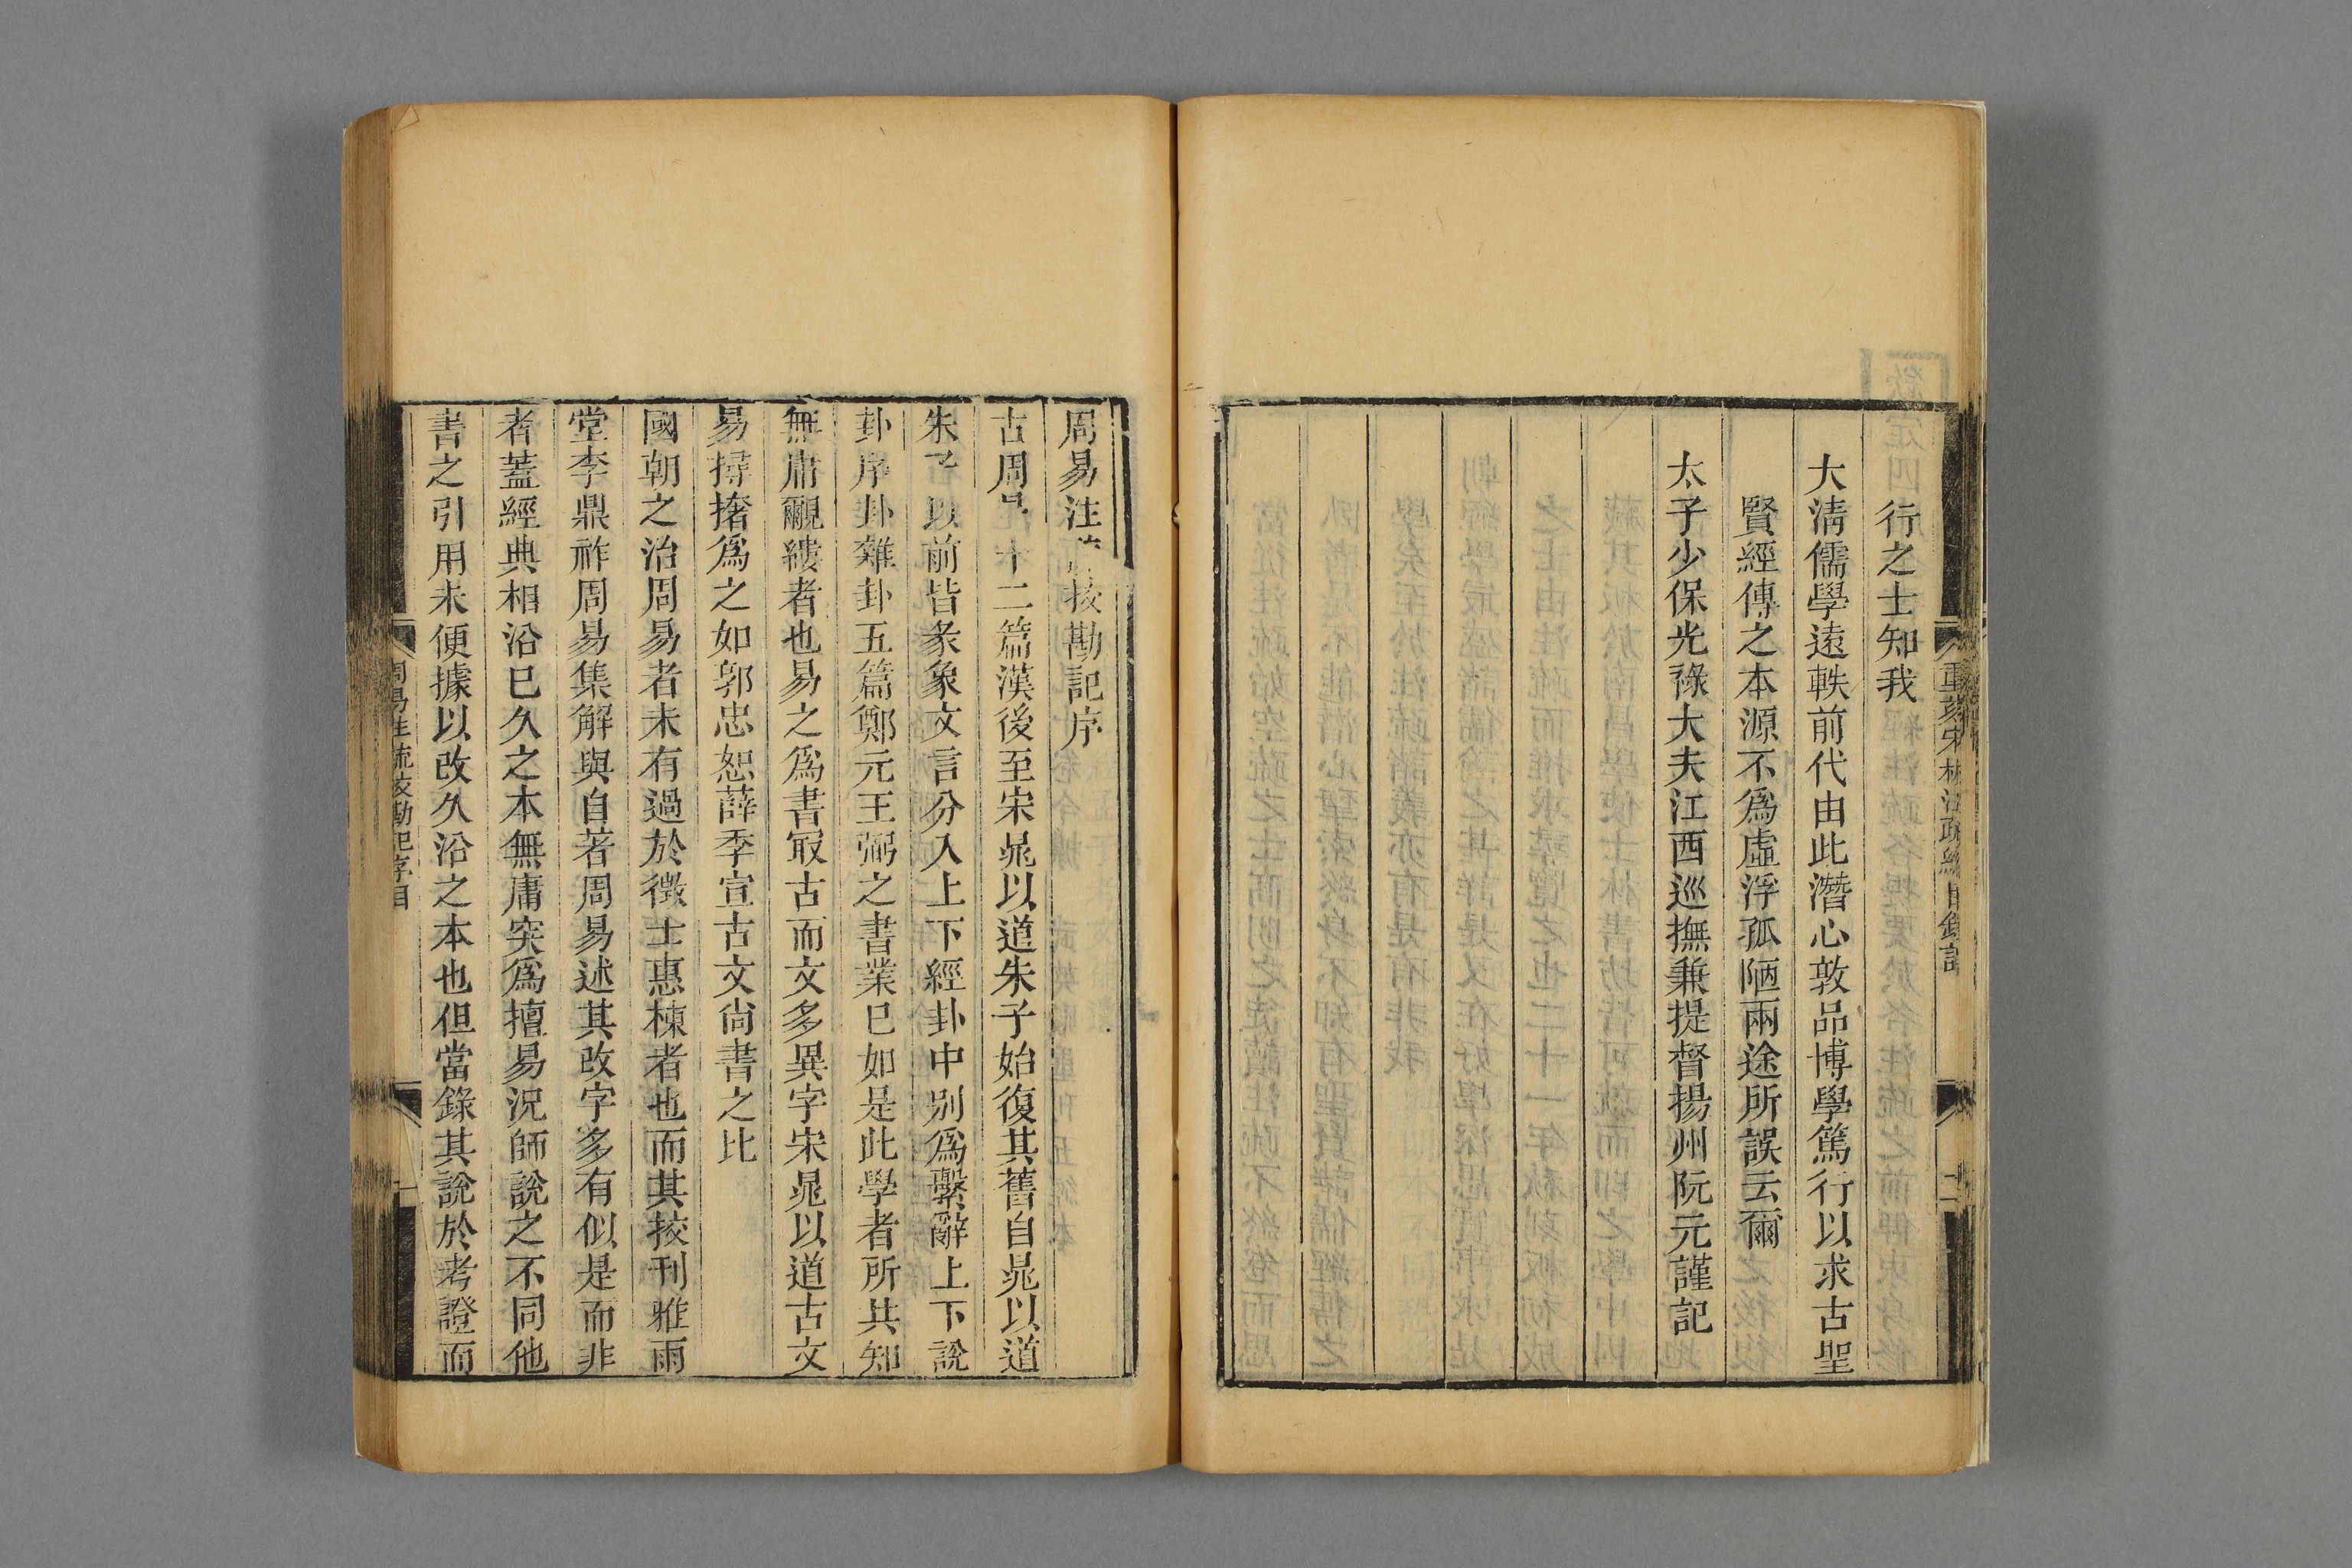 行之士知我
大淸儒學遠軼前代由此潛心敦品博學篤行以求古聖
賢經傳之本源不爲虛浮孤陋兩途所誤云爾
太子少保光祿大夫江西巡撫兼提督揚州阮元謹記
周易注挍勘記序
古周十二篇漢後至宋晁以道朱子始復其舊自晁以道
朱以前皆彖象文言分入上下經卦中别爲繫辭上下說
卦序卦雜卦五篇鄭元王弼之書業已如是此學者所共知
無庸覼縷者也易之爲書冣古而文多異字宋晁以道古文
易撏撦爲之如郭忠恕薛季宣古文尙書之比
國朝之治周易者未有過於徵士惠棟者也而其挍刊雅雨
堂李鼎祚周易集解與自著周易述其改字多有似是而非
者蓋經典相沿已久之本無庸突爲擅易況師說之不同他
書之引用未便據以改久沿之本也但當錄其說於考證而
周易注疏挍勘記序目